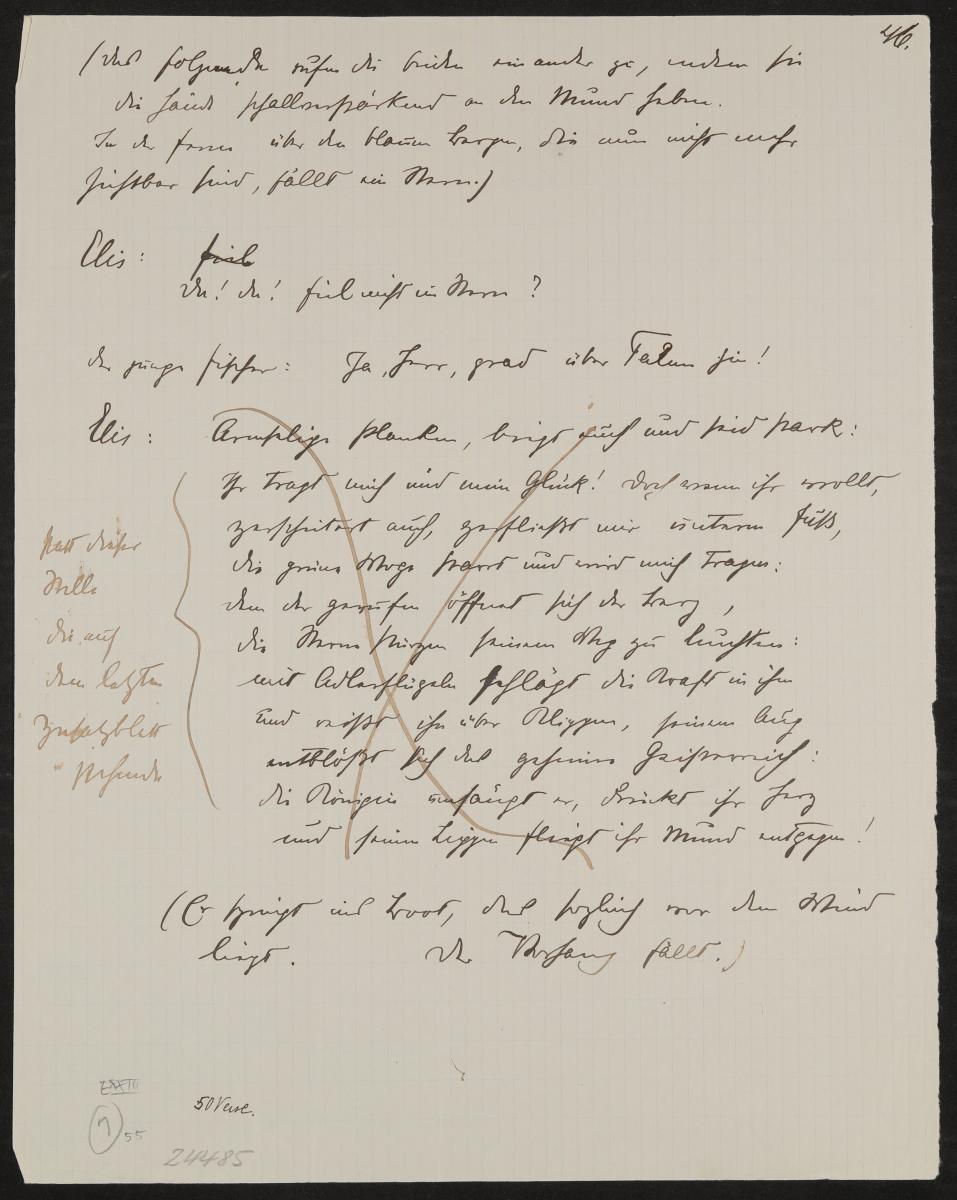 46.
(das folgende rufen die beiden einander zu, indem sie
die Hände schallverstärkend an den Mund heben.
In der Ferne über den blauen Bergen, die nun nicht mehr
sichtbar sind, fällt ein Stern.)
Elis: fiel
Da! da! fiel nicht ein Stern?
der junge Fischer: Ja, Herr, grad über Falun hin!
Elis: Armselige Planken, biegt euch und seid stark:
Ihr tragt mich und mein Glück! Doch wenn ihr wollt,
zerscheitert auch, zerfließt mir unterm Fuß,
die grüne Woge starrt und wird mich tragen:
denn der gerufen öffnet sich der Berg,
die Sterne stürzen seinem Weg zu leuchten:
mit Adlersflügeln schlägt die Kraft in ihm
und reißt ihn über Klippen, seinem Aug
entblößt sich das geheime Geisterreich:
die Königin umfängt er, drückt ihr Herz
und seinen Lippen fliegt ihr Mund entgegen!
statt dieser
Stelle
die auf
dem letzten
Zusatzblatt
stehende
(Er springt ins Boot, das sogleich vor dem Wind
liegt. Der Vorhang fällt.)
50 Verse.
55
24485